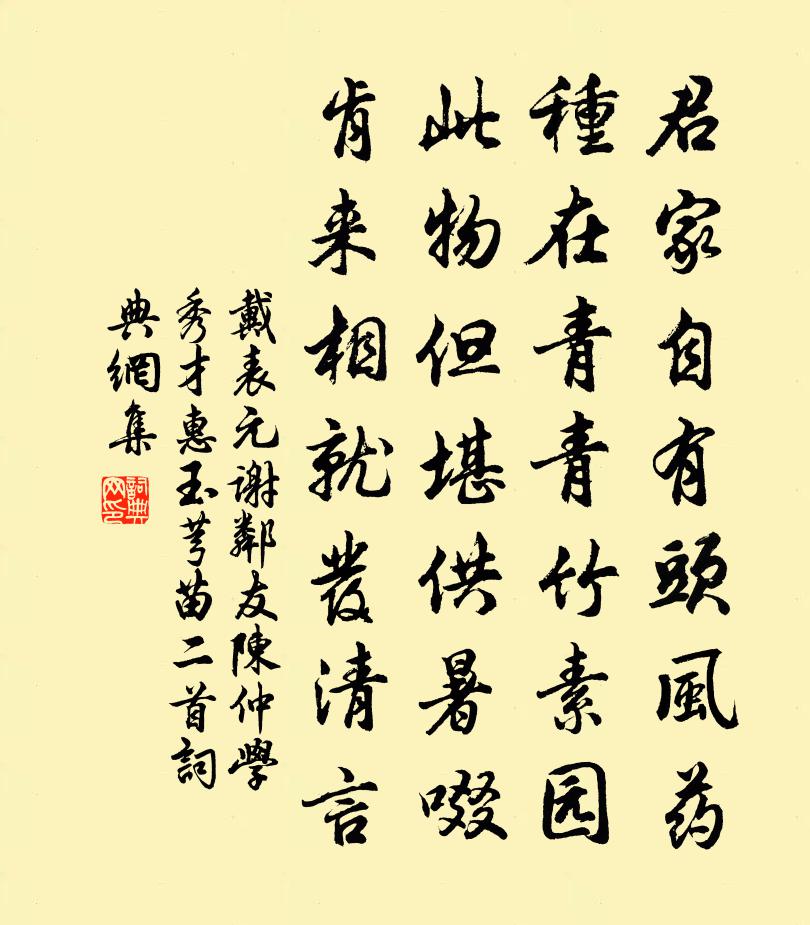 君家自有頭風药
種在青青竹素园
此物但堪供暑啜
肯来相就發清言
戴表元谢鄰友陳仲學
秀才惠玉芎苗二首詞
典網集
詞典网印